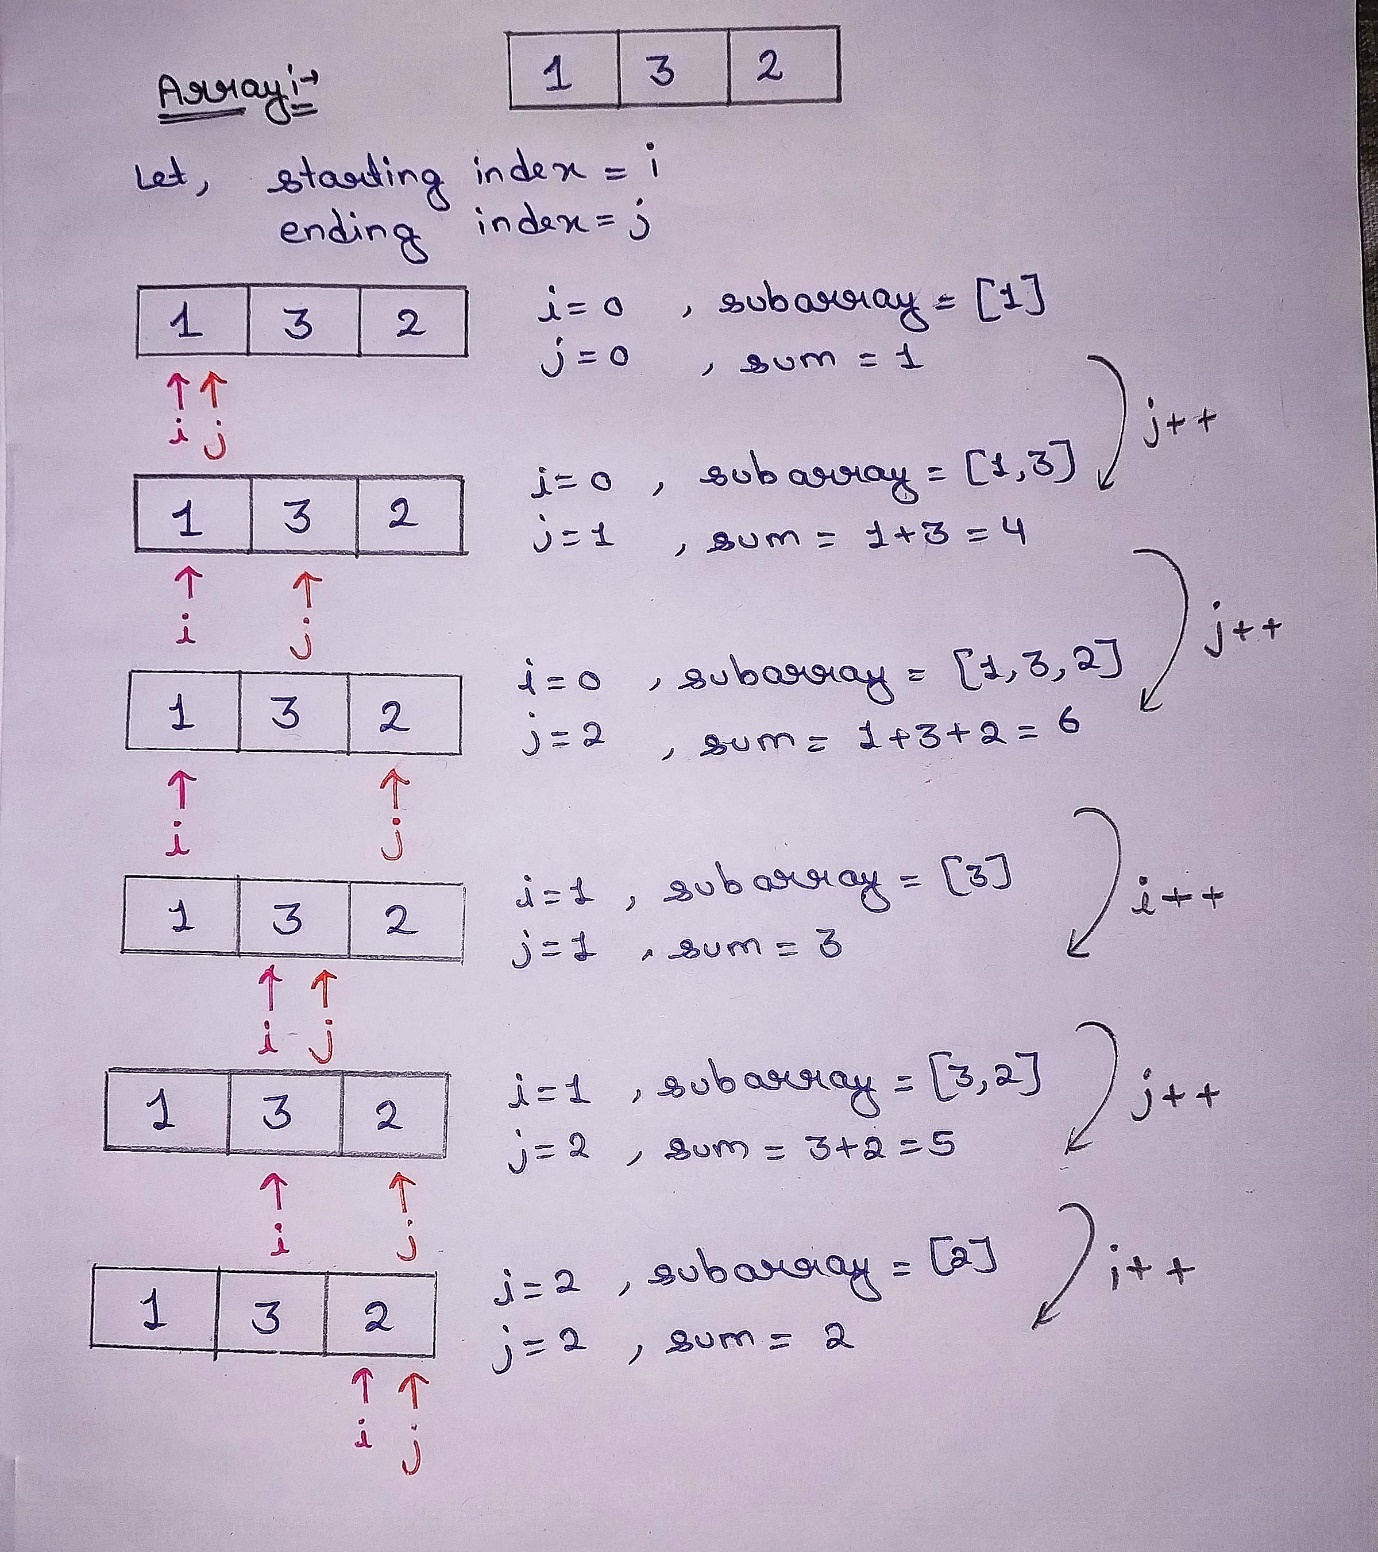 Array:→ 1 3 2
Let, starting index = i
ending index = j
1 3 2 i=0 , subarray = [1]
j=0 , sum = 1
i j j++
1 3 2 i=0 , subarray = [1,3]
j=1 , sum = 1+3 = 4
i j j++
1 3 2 i=0 , subarray = [1,3,2]
j=2 , sum = 1+3+2 = 6
i j
1 3 2 i=1 , subarray = [3] i++
j=1 , sum = 3
i j
1 3 2 i=1 , subarray = [3,2] j++
j=2 , sum = 3+2=5
i j
1 3 2 i=2 , subarray = [2] i++
j=2 , sum = 2
i j